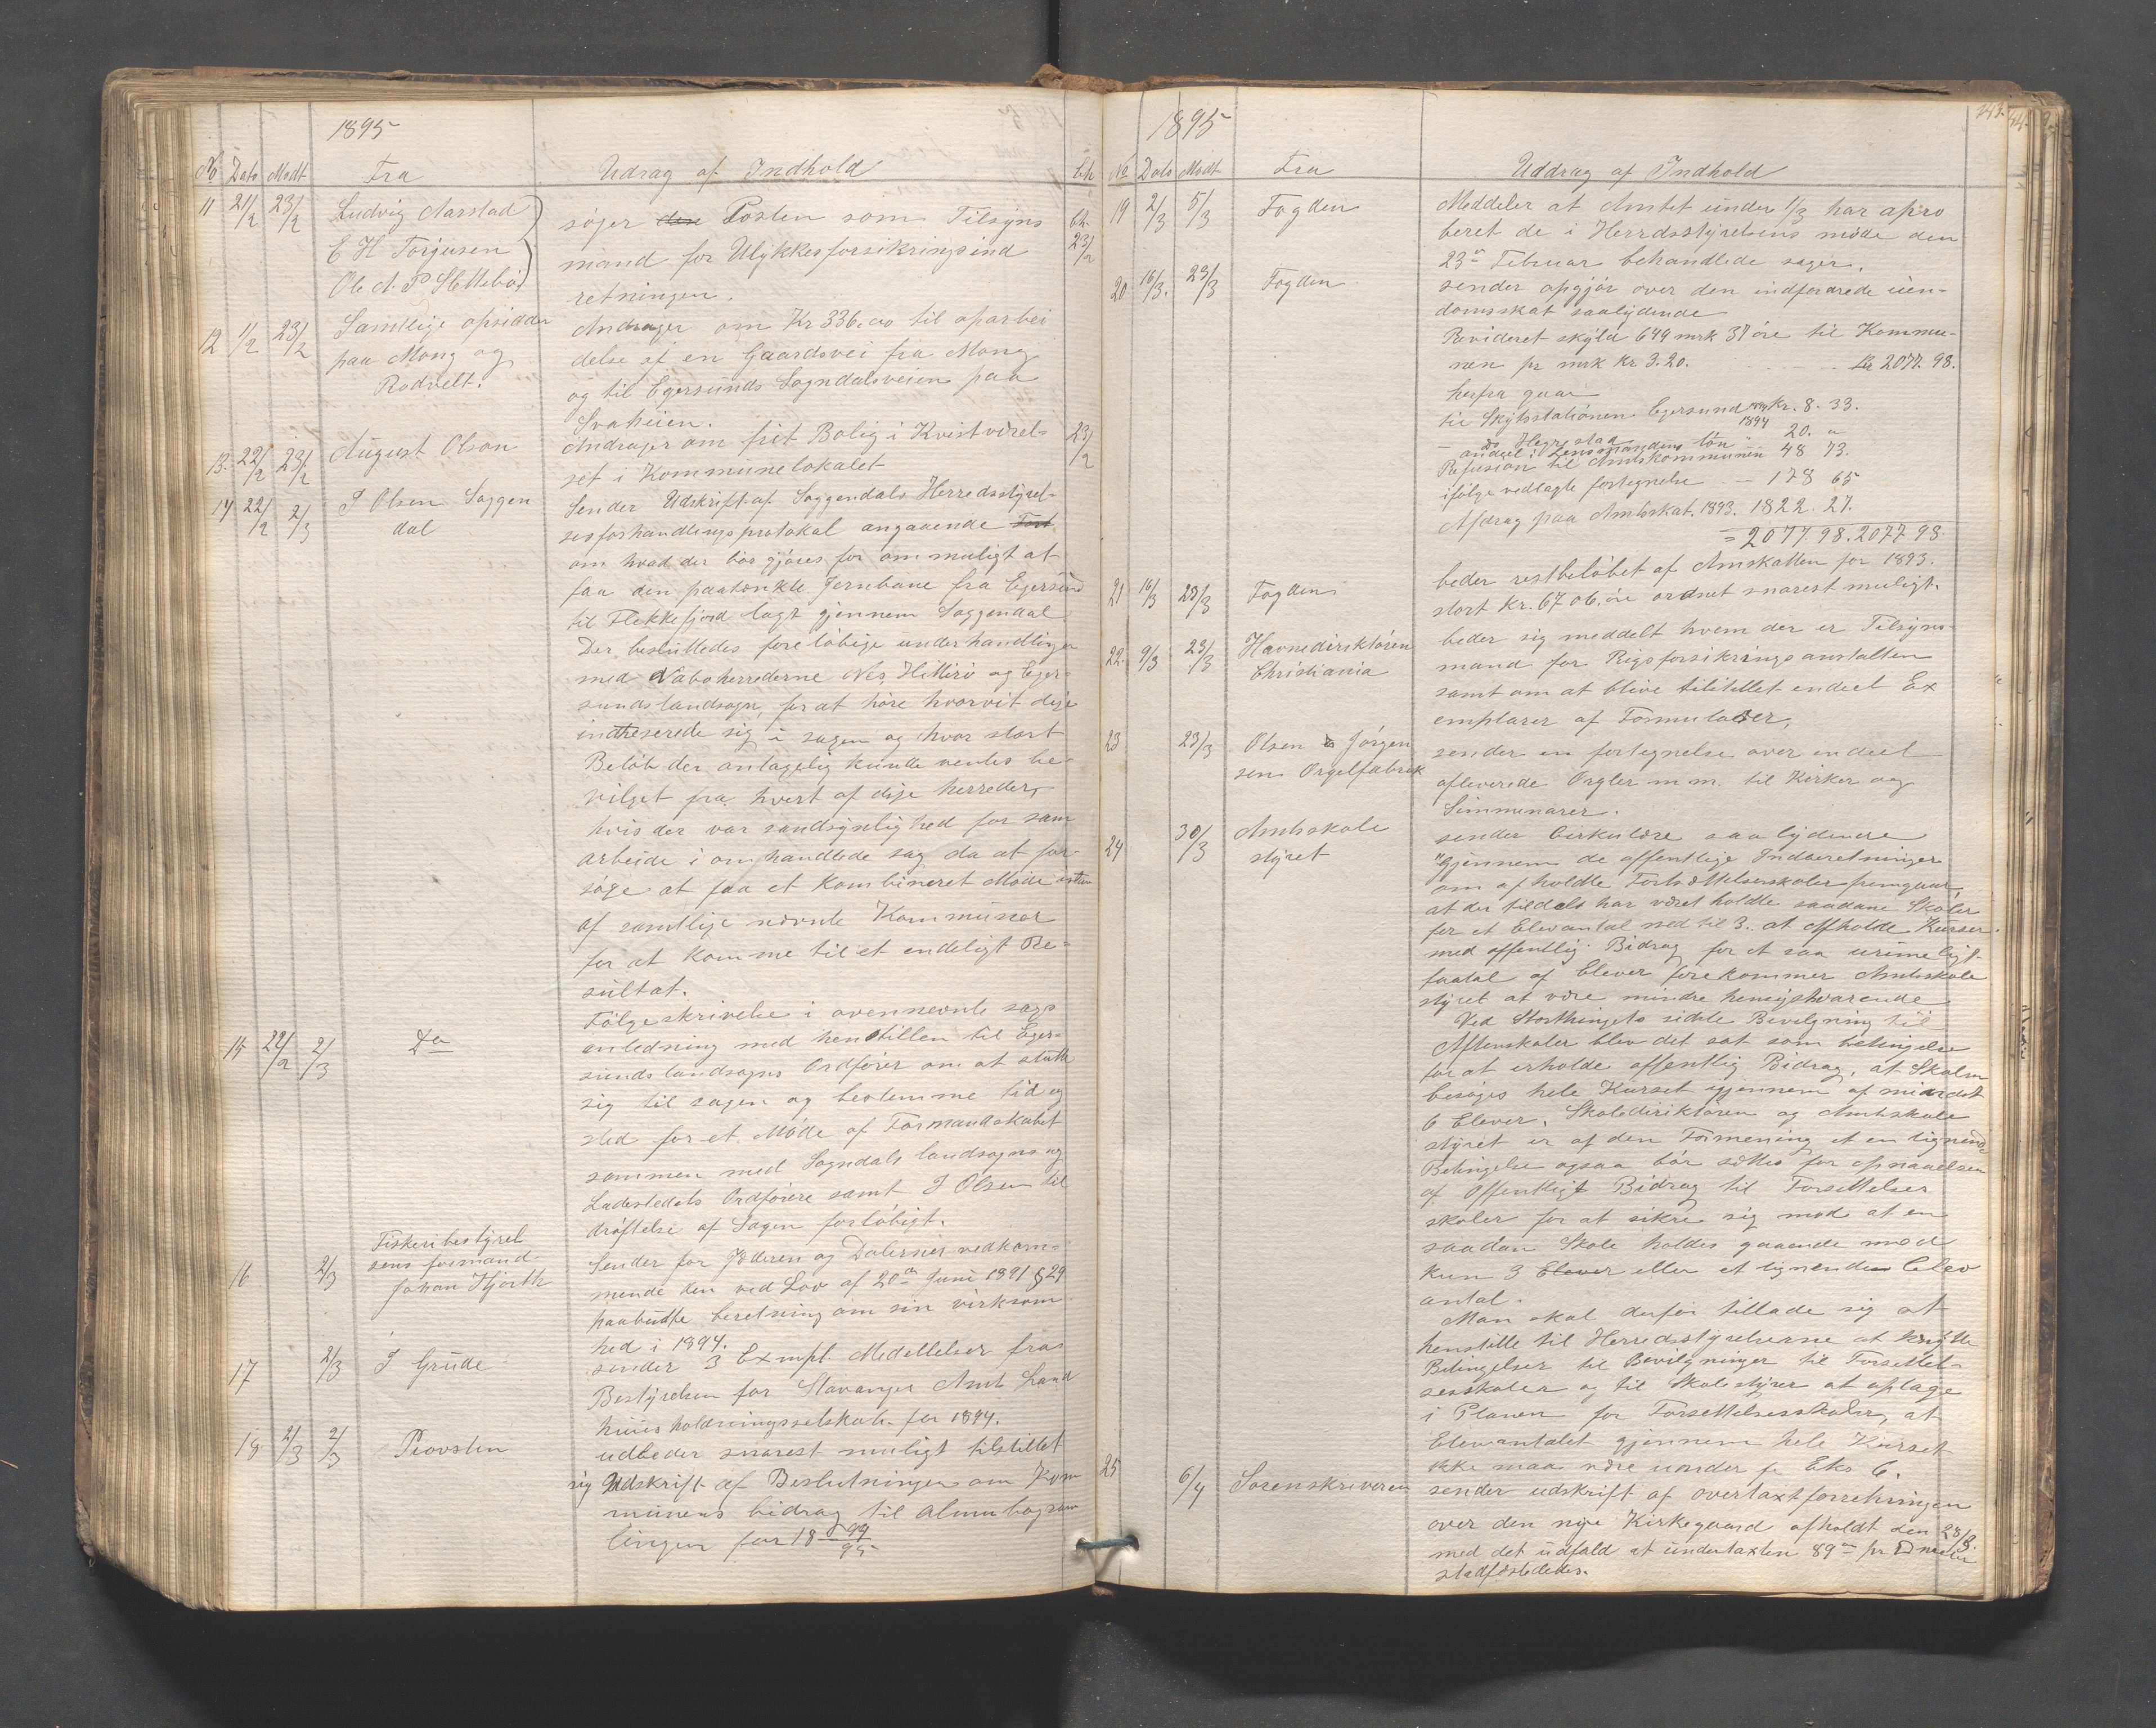 1895
No Dato Modt Fra Udrag af Indhold Ch
11 21/2 23/2 Ludvig Aarstad
E H Torjusen
Ole A. P Slettebø
søger den Posten som Tilsyns Ch. 23/2
mand for Ulykkesforsikringsind
retningen.
12 1/2 23/2 Samtlige opsidder
paa Mong og
Rodvelt.
Andrager om Kr 336.00 til oparbei
delse af en Gaardsvei fra Mong
og til Egersunds Sogndalsveien paa
Svaheien.
13. 22/2 23/2 August Olson
Andrager om frit Bolig i Kvistværel- 23/2
set i Kommunelokalet
14 22/2 2/3 J Olsen Soggen
dal
Sender Udskrift af Soggendals Herredsstyrel-
sesforhandlingsprotokal angaaende Fort
om hvad der bør gjøres for om muligt at
faa den paatænkte Jernbane fra Egersund
til Flekkefjord lagt gjennem Soggendal
Der besluttedes foreløbige underhandlinger
med Naboherrederne Nes, Hitterø og Eger-
sunds landsogn, for at høre hvorvit disse
indtreserede sig i sagen og hvor stort
Beløb der antagelig kunde ventes be-
vilget fra hvert af disse herreder,
hvis der var sandsynlighed for sam
arbeide i omhandlede sag da at for-
søge at faa et Kombineret Møde
af samtlige nævnte Kommuner
for at komme til et endeligt Re-
sultat.
15 22/2 2/3 Do
Følgeskrivelse i ovennevnte sags
anledning med henstillen til Eger-
sunds landsogns Ordfører om at slutte
sig til sagen og bestemme tid og
sted for et Møde af Formandskabet
sammen med Sogndals landsogns og
Ladestedets Ordførere samt J Olsen til
drøftelse af Sagen forløbigt.
16 2/3 Fiskeribestyrel
sens formand
Johan Hjorth
Sender for Jæderen og Dalernes vedkom-
mende den ved Lov af 20de Juni 1891 § 29
paabudte beretning om sin virksom
hed i 1894.
17 2/3 J Grude
sender 3 Exmpl. Medellelser fra
Bestyrelsen for Stavanger Amt Land
huusholdningsselskab for 1894.
18 2/3 2/3 Provsten
udbeder snarest muligt tilstillet
sig Udskrift af Beslutningen om Kom
munens bidrag til almubogsam
lingen for 18 94/95
243.
1895
No Dato Modt Fra Uddrag af Indhold
19 2/3 5/3 Fogden
Meddeler at Amtet under 1/3 har apro
beret de i Herrdsstyrelsens møde den
23de Februar behandlede sager.
20 16/3. 23/3 Fogden
sender opgjør over den indfordrede eien-
domsskat saalydende
Revideret skyld 649 mrk 37 øre til Kommu-
nen pr mrk Kr 3.20. Kr 2077.98.
herfra gaar
til Skydsstationen Egersund 1894 Kr. 8. 33.
- do Hegrestad 1894 20. "
andeel i Lensmandens løn " 48 73.
Refusion til Amtskommunen
ifølge vedlagte fortegnelse - 178 65
Afdrag paa Amtsskat. 1893. 1822. 27.
= 2077.98. 2077 98.
21 16/3 23/3 Fogden
beder restbeløbet af Amskatten for 1893.
stort Kr. 67 06. øre ordnet snarest muligt.
22. 9/3 23/3 Havnedirektøren
Christiania
beder sig meddelt hvem der er Tilsyns-
mand for Rigsforsikringsanstalten
samt om at blive tilstillet endeel Ex
emplarer af Formularer,
23 23/3 Olsen & Jørgen
sen Orgelfabrek
sender en fortegnelse over endeel
afleverede Orgler m m. til Kirker og
Simmenarer.
24 30/3 Amtsskole
styret
sender Cirkulære saa lydende
"Gjennem de offentlige Indberetninger
om afholdte Fortsættelsesskoler fremgaar,
at der tildels har været holdte saadane Skoler
for et Elevantal ned til 3. at afholde Kurser
med offentlig Bidrag for et saa urimeligt
faatal af Elever forekommer Amtsskole
styret at være mindre hensigtsvarende
Ved Storthingets sidste Bevilgning til
Aftenskoler blev det sat som betingelse
for at erholde offentlig Bidrag, at Skolen
besøges hele Kurset igjennem af mindst
6 Elever. Skoledirektøren og Amtsskole
styret er af den Formening at en lignende
Betingelse ogsaa bør sættes for opnaaelsen
af Offentligt Bidrag til Forsettelses
skoler for at sikre sig mod at en
saadan Skole holdes gaaende med
kun 3 Elever eller et lignende Elev
antal.
Man skal derfor tillade sig at
henstille til Herredsstyrelserne at knytte
Betingelser til Bevilgninger til Forsettel-
sesskoler og til Skolestyrer at optage
i Planen for Forsettelsesskoler, at
Elevantalet gjennem hele Kurset
ikke maa være under f. Eks 6.
25 6/4 Sorenskriveren
sender udskrift af overtaxtforretningen
over den nye Kirkegaard afholdt den 28/3.
med det udfald at undertaxten 89 pr meter
stadfæstedes.